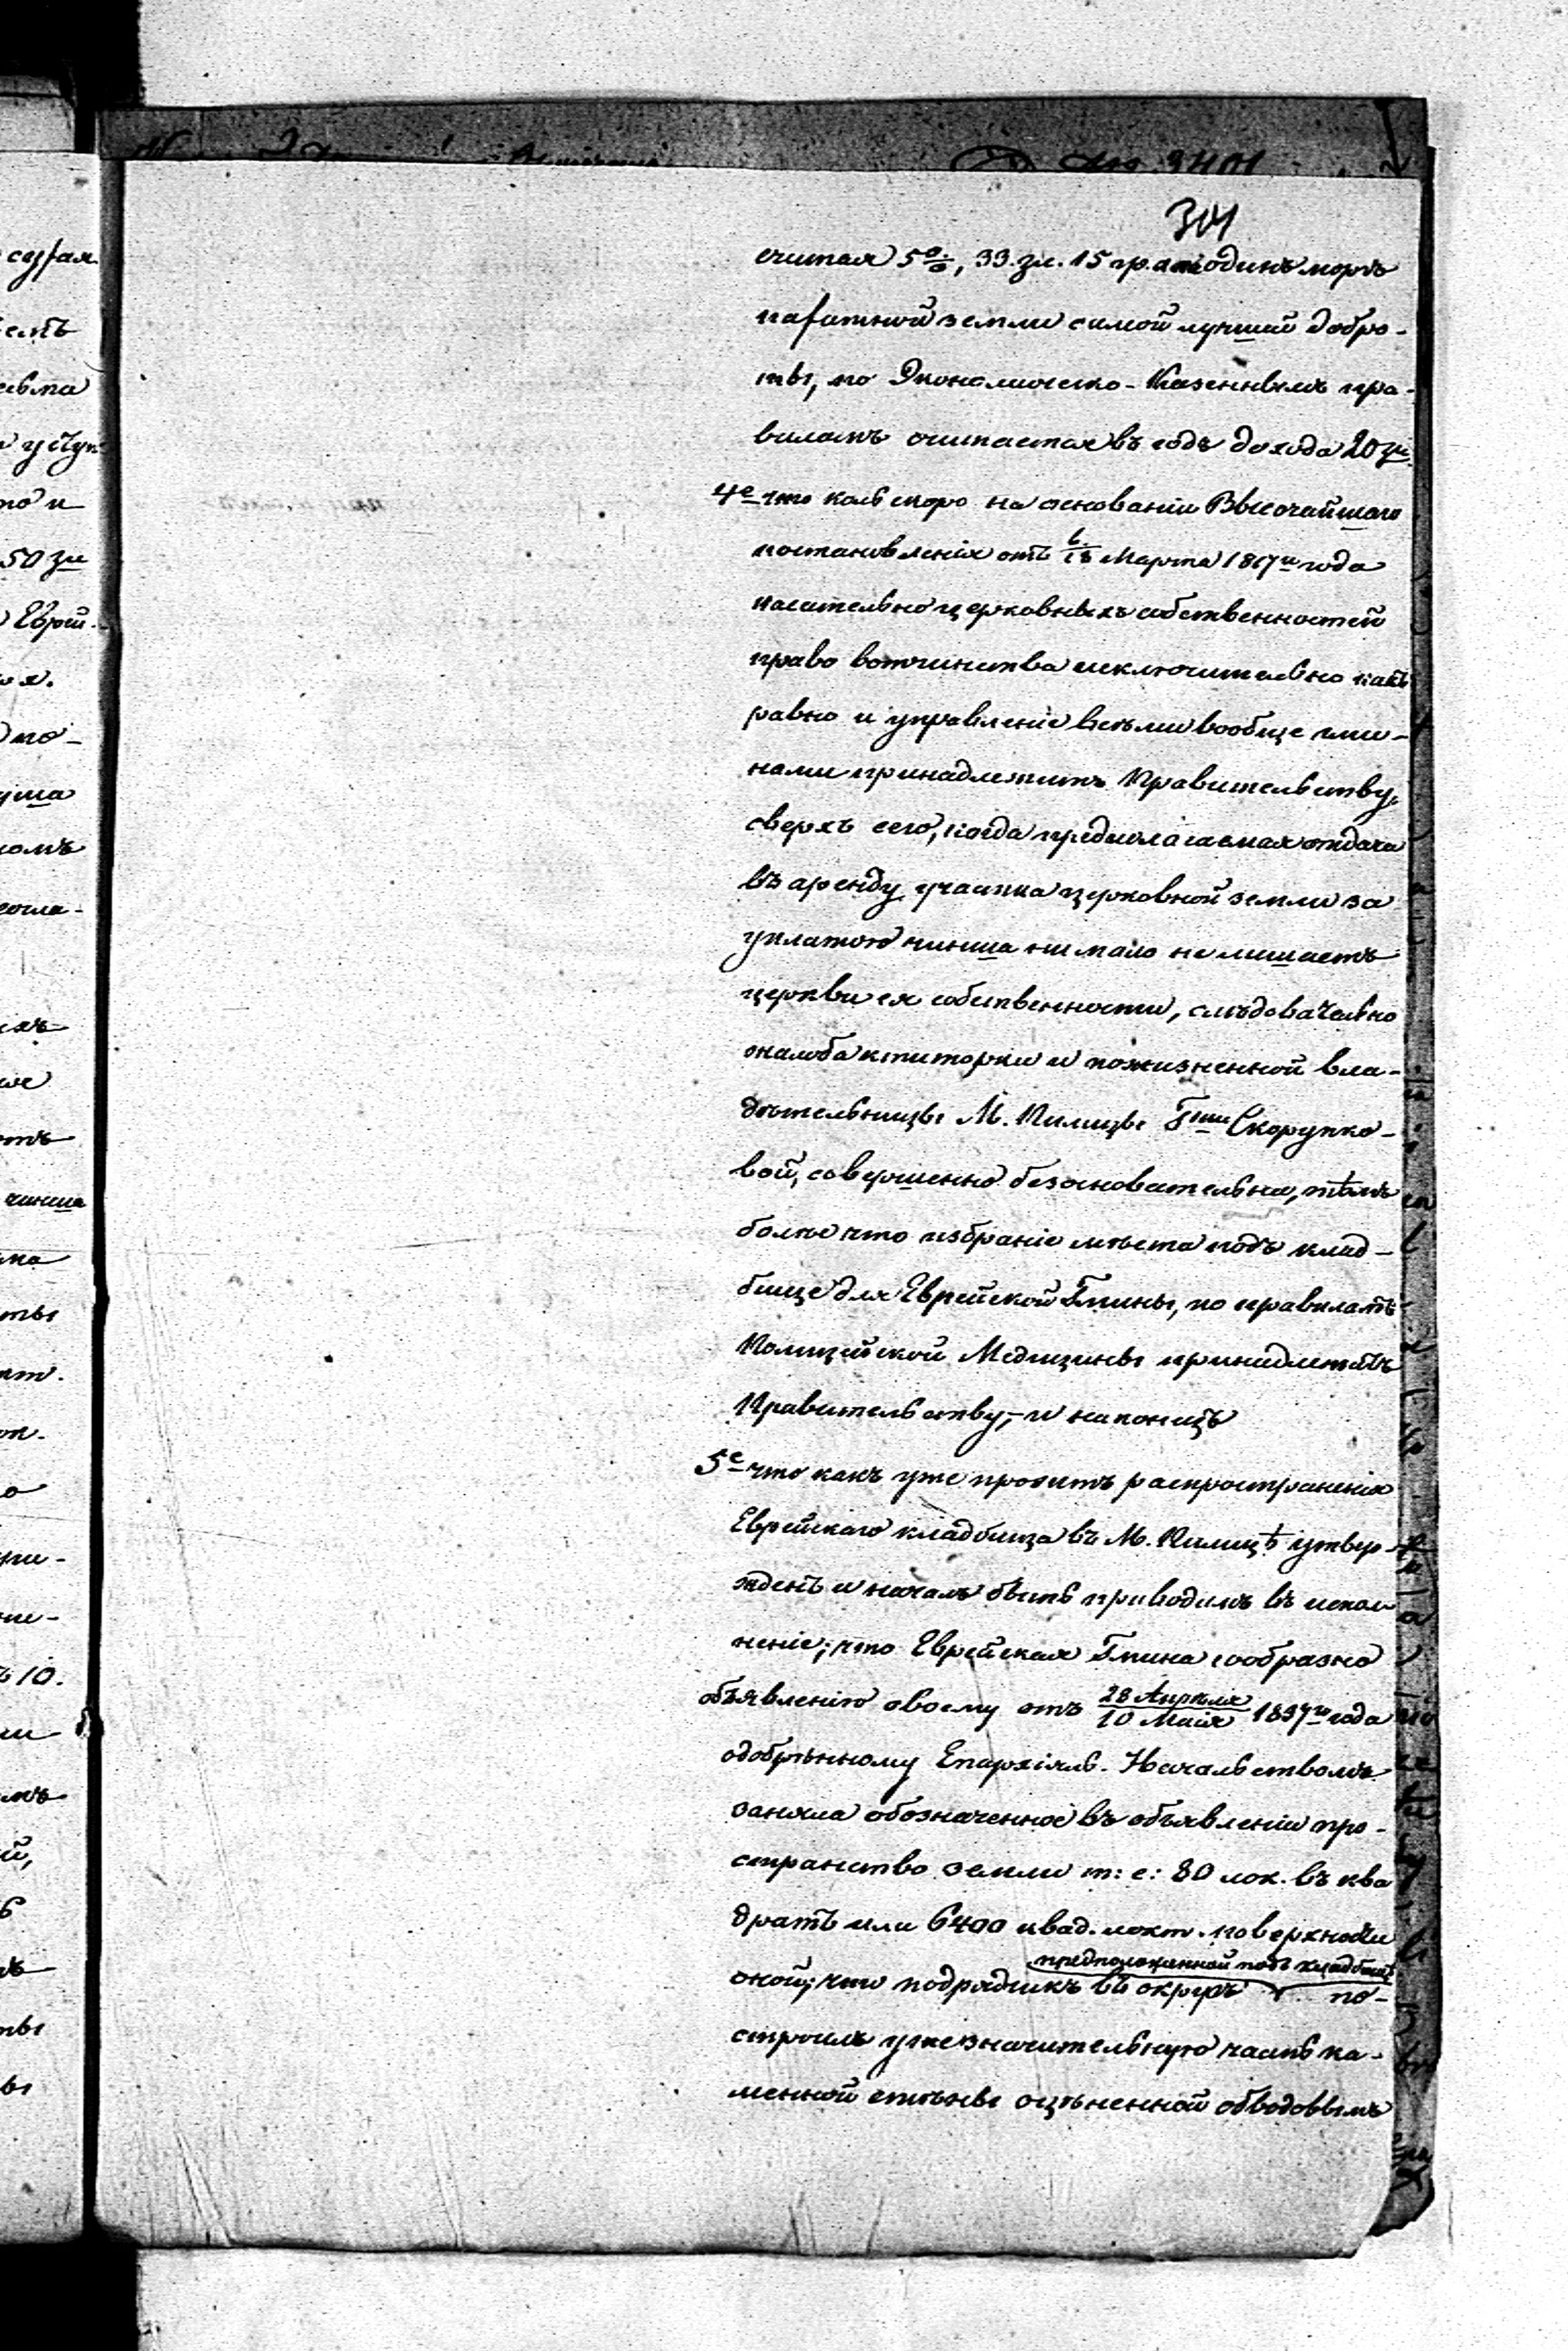 304
считая 5%, 33. зл. 15 гр. а одинъ моргъ
пахатной земли самой лучшей добро-
ты, по Экономическо-Казеннымъ пра-
виламъ считается въ годъ дохода 20 зл.
4е что коль скоро на основаніи Высочайшаго
постановленія отъ 6/18 Марта 1817го года
касательно церковныхъ собственностей
право вотчинства исключительно какъ
равно и управленіе всѣми вообще гми-
нами принадлежитъ Правительству,
сверхъ сего, когда предполагаемая отдача
въ аренду участка церковной земли за
уплатою чинша ни мало не лишаетъ
церкви ея собственности, слѣдовательно
жалоба ктиторки и пожизненной вла-
дѣтельницы М. Пилицы Гжи Скорупко-
вой, совершенно безосновательна, тѣмъ
болѣе что избраніе мѣста подъ клад-
бище для Еврейской Гмины, по правиламъ
Полицейской Медицины принадлежитъ
Правительству; – и наконецъ
5е что какъ уже проэктъ распространенія
Еврейскаго кладбища въ М. Пилицѣ утвер-
жденъ и началъ быть приводимъ въ испол-
неніе; что Еврейская Гмина сообразно
объявленію своему отъ 28 Апрѣля/10 Маія 1837го года
одобрѣнному Епархіяль. Начальствомъ
заняла обозначенное въ объявленіи про-
странство земли т: е: 80 лок. въ ква
дратѣ или 6400 квад. локт. поверхности
предположенной подъ кладбище
оной; что подрядчикъ въ округъ по-
строилъ уже значительную часть ка-
менной стѣны оцѣненной обводовымъ